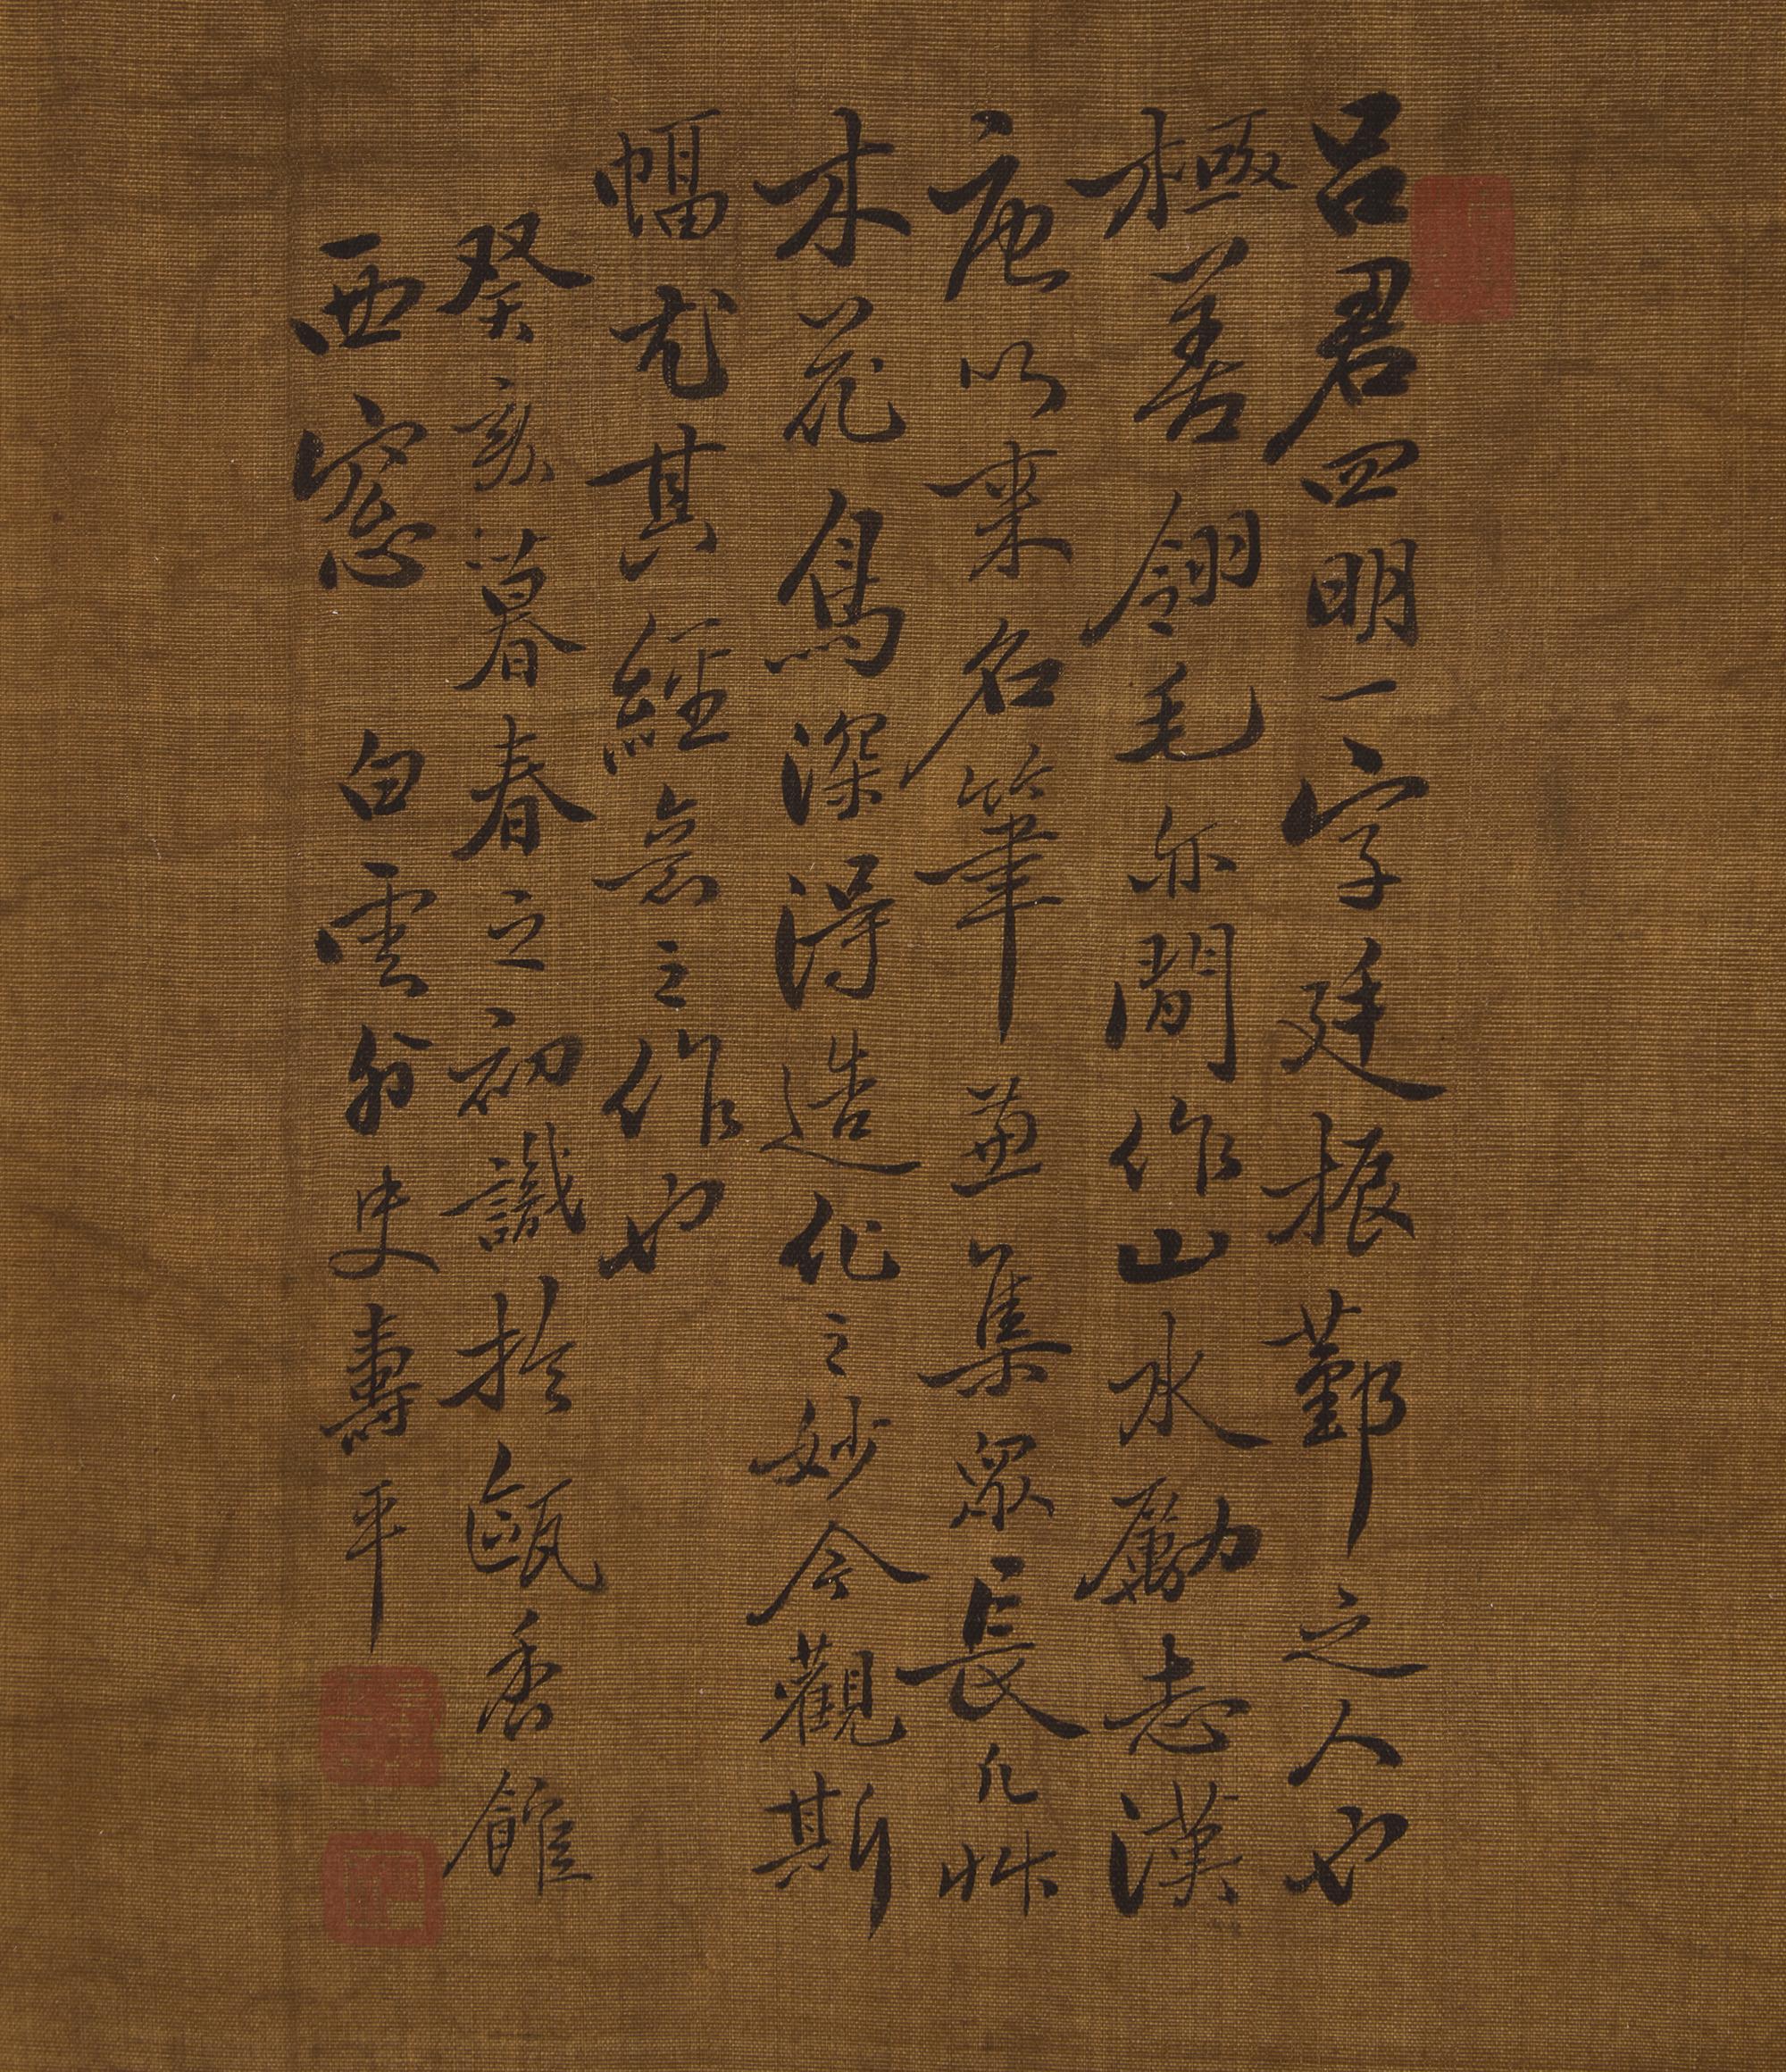 呂君四明一字廷振鄞之人也
極善翎毛亦間作山水勵志漢
唐以來名筆兼集眾長凡艸
木花鳥深得造化之妙今觀斯
幅尤其經意之作也
癸亥暮春之初識於甌香館
西窓 白雲外史壽平